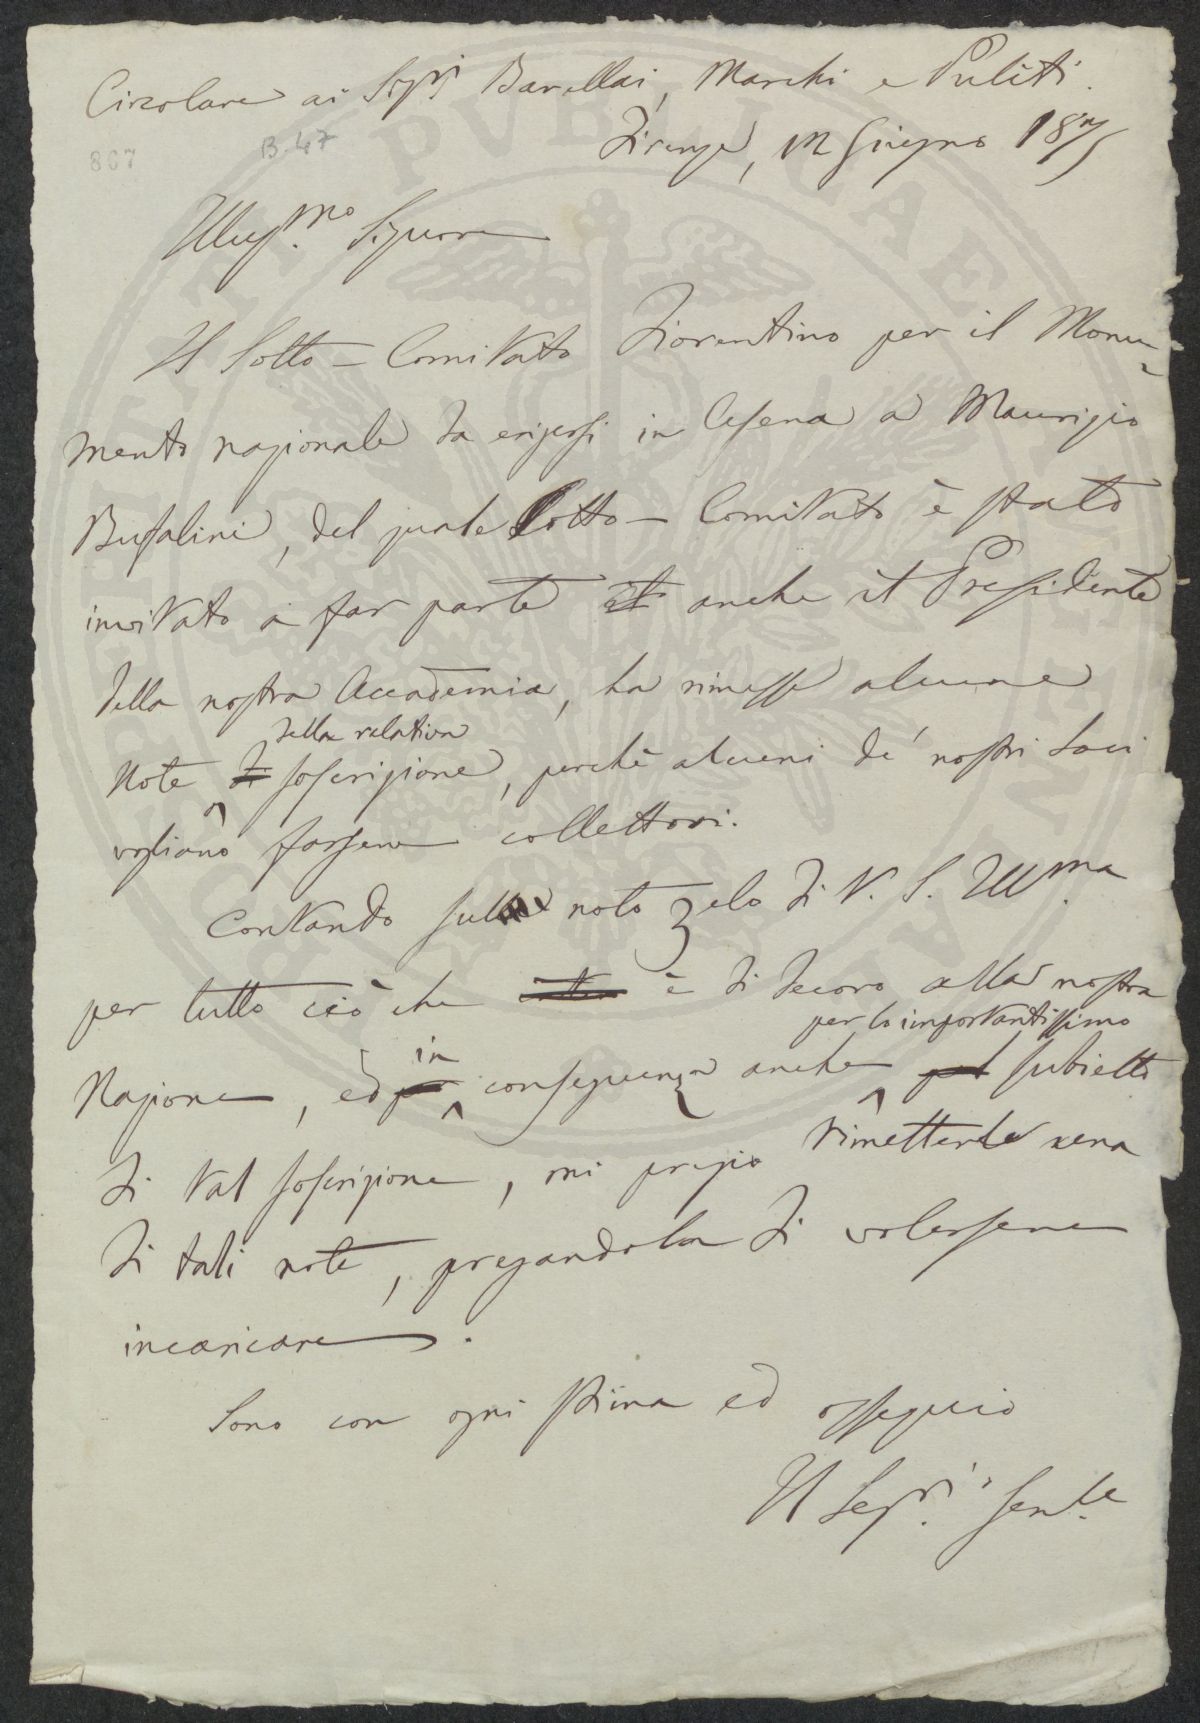 Circolare ai Sig.ri Barellai, Marchi e Puliti.
867 B.47
Firenze, 12 Giugno 1875
Illus.mo Signore
Il Sotto-Comitato Fiorentino per il Monu-
mento nazionale da erigersi in Cesena a Maurizio
Bufalini, del quale Sotto-Comitato è stato
invitato a far parte il anche il Presidente
della nostra Accademia, ha rimesse alcune
della relativa
Note di soscrizione, perchè alcuni de' nostri Soci
vogliano farsene collettori.
Contando sul noto zelo di V. S. Ill.ma
per tutto ciò che è di decoro alla nostra
per lo importantissimo
Nazione, ed in conseguenza anche pel subietto
di tal soscrizione, mi pregio rimetterle una
di tali note, pregandola di volersene
incaricare.
Sono con ogni stima ed ossequio
Il Seg.rio Gen.le